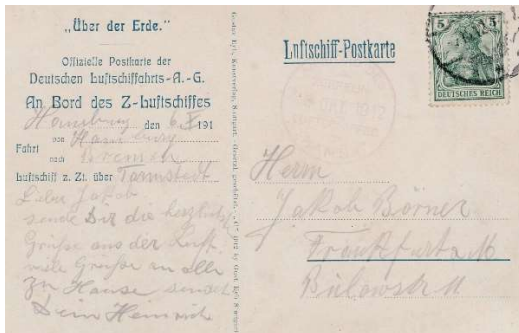 „Über der Erde."
Offizielle Postkarte der
Deutschen Luftschiffahrts-A.-G.
An Bord des Z-Luftschiffes
Hamburg den 6 X 191
Fahrt von Hamburg
nach Bremen
Luftschiff z. Zt. über
Lieber Jakob
sende Dir die herzlichsten
Grüße aus der Luft
viele Grüße an alle
zu Hause sendet
Dein Heinrich
Luftschiff-Postkarte
5 5
DEUTSCHES REICH
Herrn
Jakob Börner
Frankfurt a M
Bülowstr 11